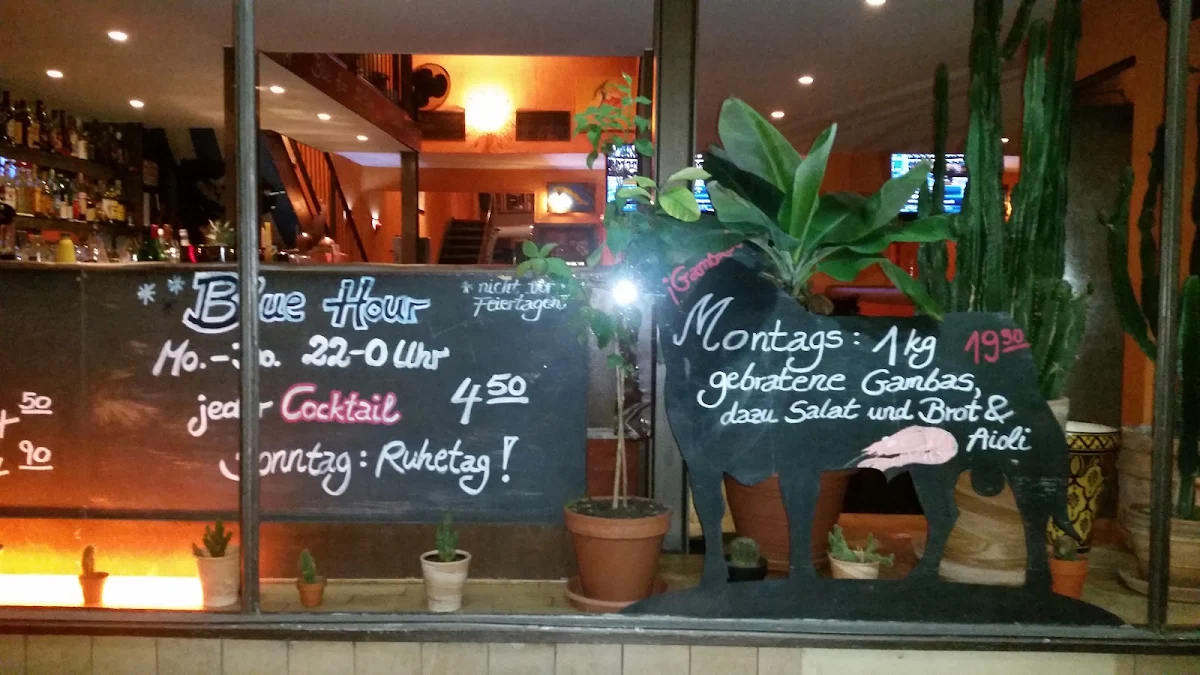 50
90
** Blue Hour
* nicht vor
Feiertagen
Mo.- 22-0 Uhr
jeder Cocktail 4 50
Sonntag: Ruhetag!
Montags: 1 kg 19 90
gebratene Gambas,
dazu Salat und Brot &
Aioli